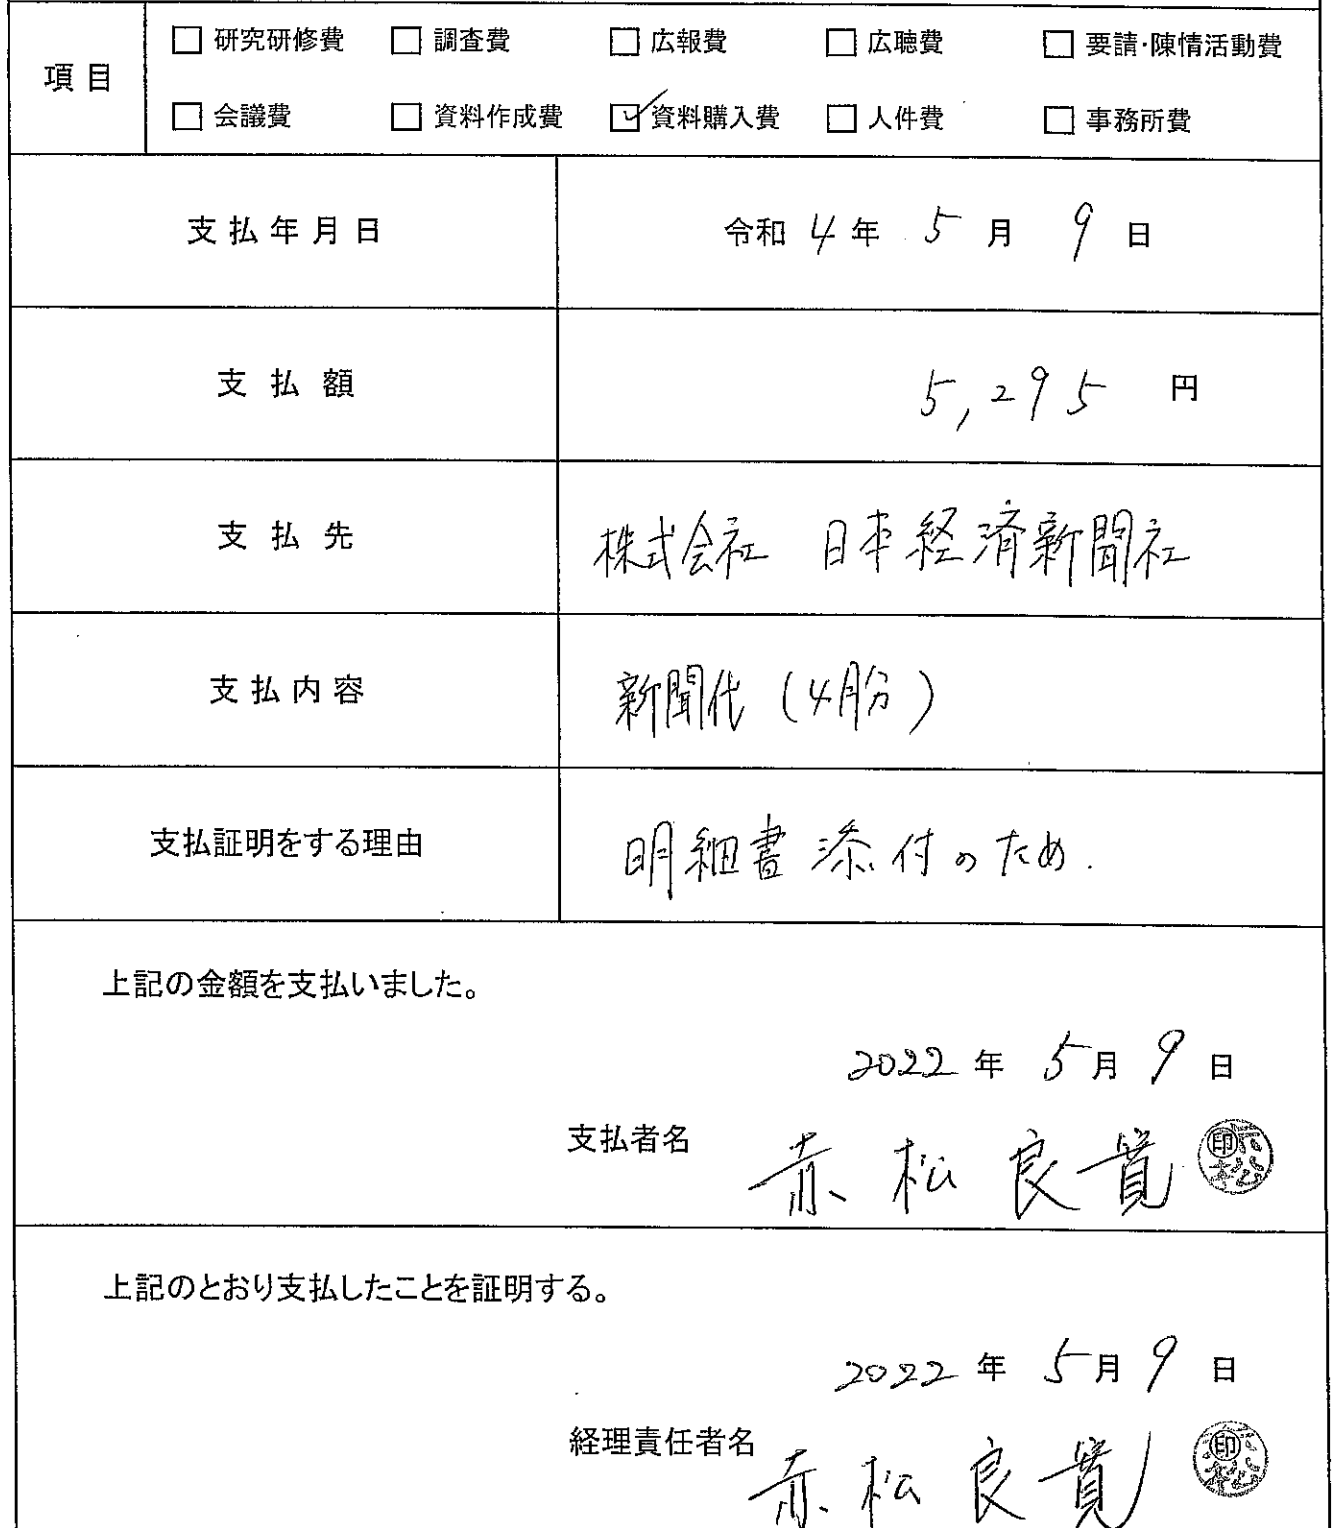 項目
□ 研究研修費 □ 調査費 □ 広報費 □ 広聴費 □ 要請・陳情活動費
□ 会議費 □ 資料作成費 ☑ 資料購入費 □ 人件費 □ 事務所費
支払年月日 令和 4 年 5 月 9 日
支払額 5,295 円
支払先 株式会社 日本経済新聞社
支払内容 新聞代(4月分)
支払証明をする理由 明細書添付のため.
上記の金額を支払いました。
2022 年 5 月 9 日
支払者名 赤松良寛 印
上記のとおり支払したことを証明する。
2022 年 5 月 9 日
経理責任者名 赤松良寛 印